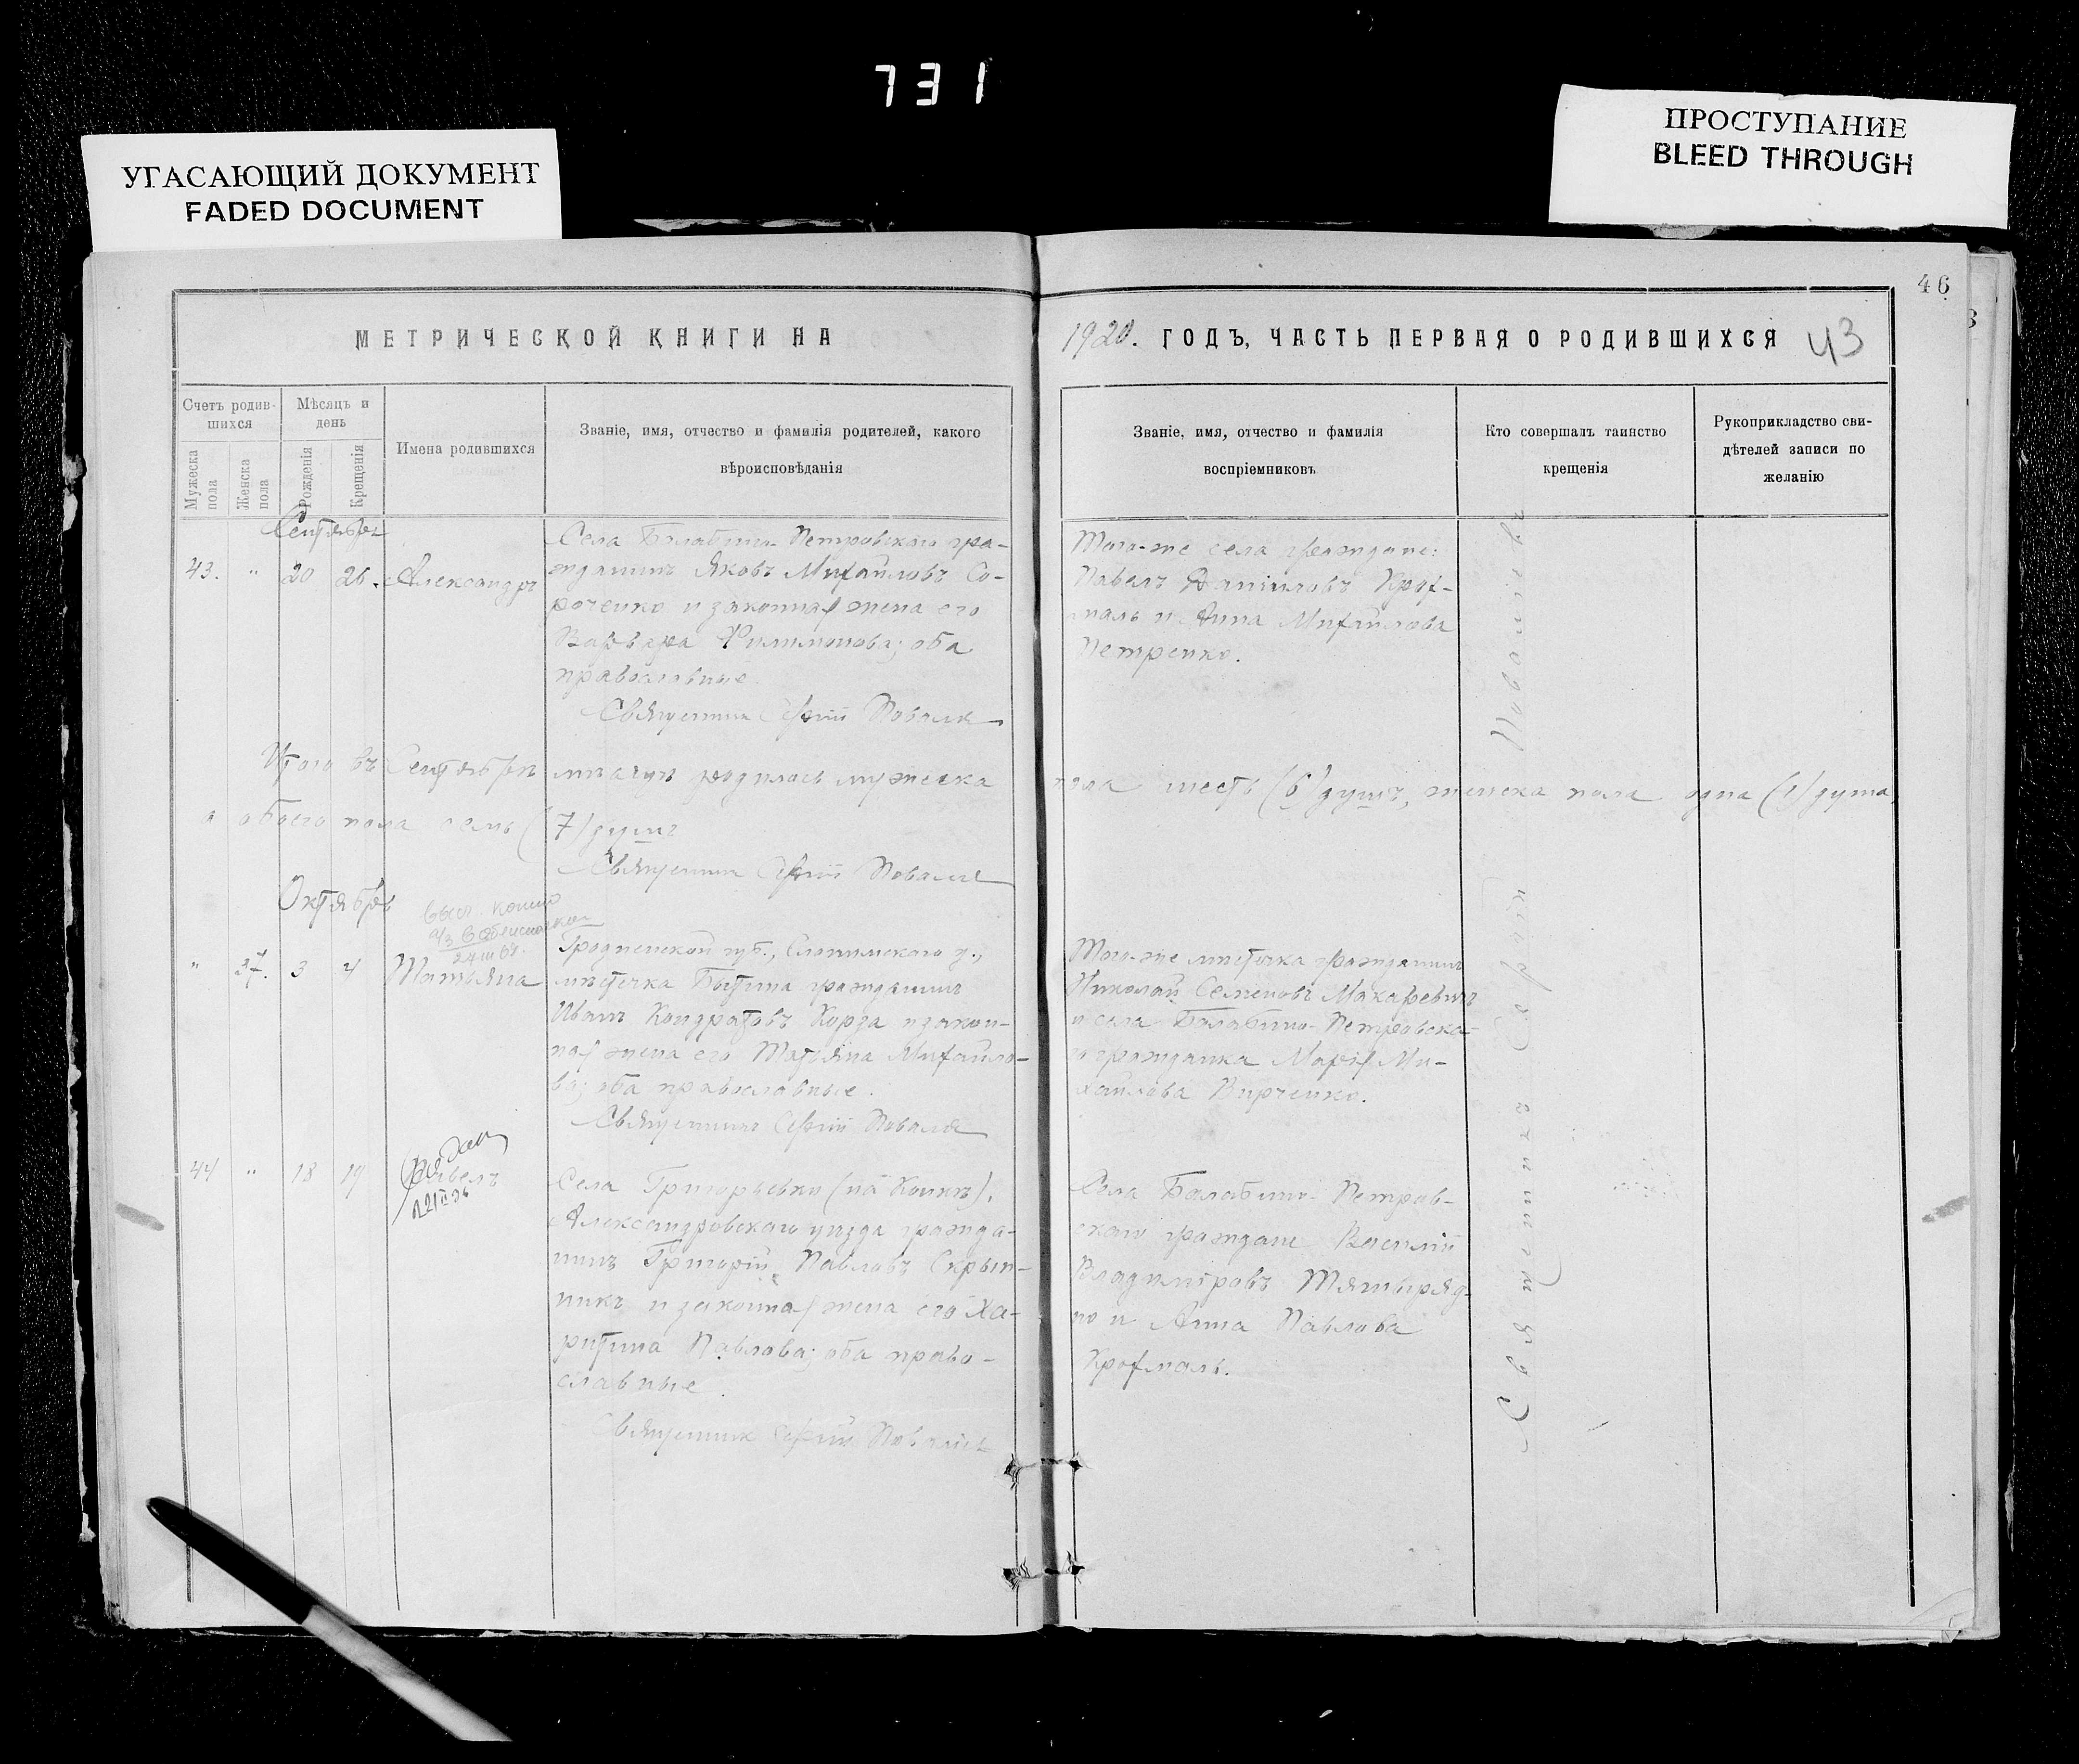 731
УГАСАЮЩИЙ ДОКУМЕНТ
FADED DOCUMENT
ПРОСТУПАНИЕ
BLEED THROUGH
46
МЕТРИЧЕСКОЙ КНИГИ НА
1920. ГОДЪ, ЧАСТЬ ПЕРВАЯ О РОДИВШИХСЯ 43
Счетъ родив-
шихся
Мужеска пола
Женска пола
Мѣсяцъ и
день
Рожденія
Крещенія
Имена родившихся
Званіе, имя, отчество и фамилія родителей, какого
вѣроисповѣданія
Званіе, имя, отчество и фамилія
воспріемниковъ
Кто совершалъ таинство
крещенія
Рукоприкладство сви-
дѣтелей записи по
желанію
Сентябрь
43. " 20 26. Александръ
Села Балабино-Петровскаго гра-
жданинъ Яковъ Михайловъ Со-
роченко и законная жена его
Варвара Филимонова; оба
православные.
Священникъ Сергій Поваля
Того-же села граждане:
Павелъ Даніиловъ Крох-
маль и Анна Михайлова
Петренко.
Итого въ Сентябрѣ мѣсяцѣ родилось мужеска пола шесть (6) душъ, женска пола одна (1) душа,
а обоего пола семь (7) душъ
Священникъ Сергій Поваля
Октябрь
" 37. 3 4 Татьяна
Гродненской губ., Слонимскаго у.,
мѣстечка Бытина гражданинъ
Иванъ Кондратовъ Корза и закон-
ная жена его Татьяна Михайло-
ва; оба православные.
Священникъ Сергій Поваля
Того-же мѣстечка гражданинъ
Николай Семеновъ Макаревичъ
и села Балабино-Петровска-
го гражданка Марія Ми-
хайлова Вирченко.
44 " 18 19 Павелъ
Села Григорьевки (на Конкѣ),
Александровскаго уѣзда гражда-
нинъ Григорій Павловъ Скрып-
никъ и законная жена его Ха-
ритина Павлова; оба право-
славные.
Священникъ Сергій Поваля
Села Балабино-Петров-
скаго граждане Василій
Владиміровъ Тягныряд-
но и Анна Павлова
Крохмаль.
Священникъ Сергій